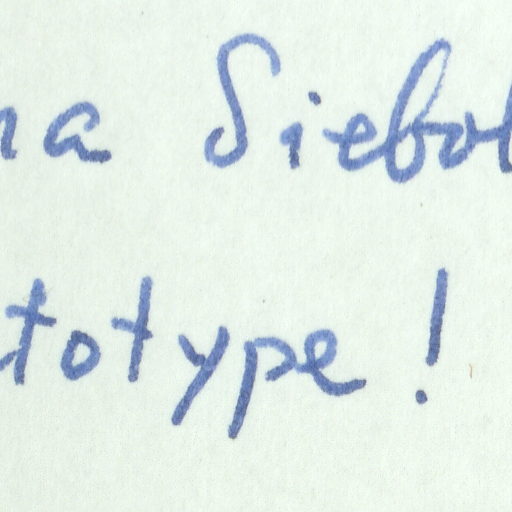 na Siebol
totype!